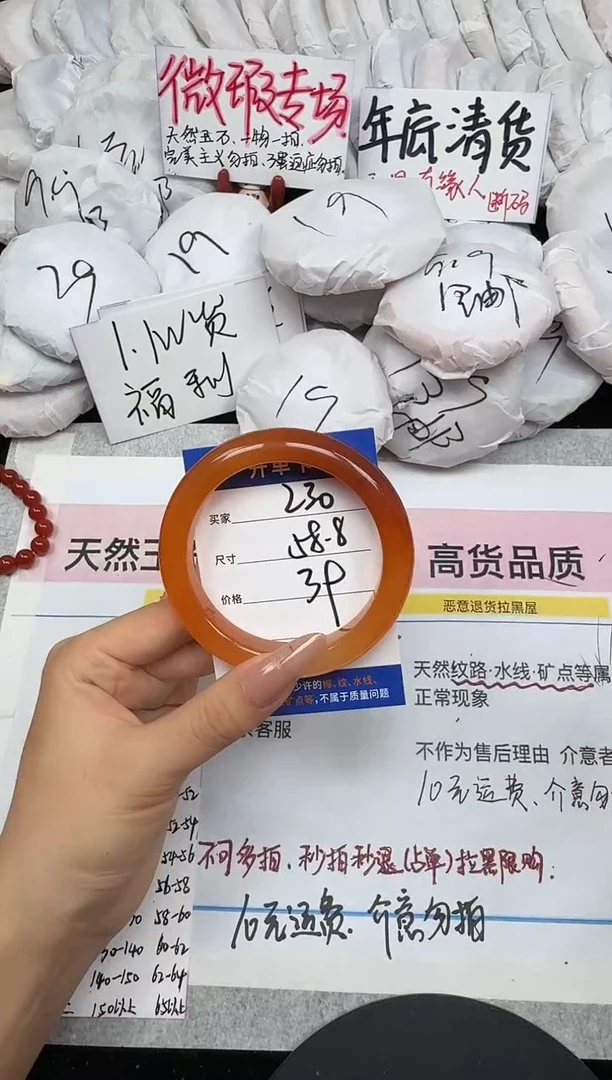 微瑕专场
天然玉石、一物一拍、
完美主义勿拍、
年底清货
有缘人
断码
29
19
19
1.1W货
福利
15
买家 230
尺寸 58-8
价格 39
天然玉
高货品质
恶意退货拉黑屋
少许的棉、纹、水线、
矿点等，不属于质量问题
客服
天然纹路·水线·矿点等属
正常现象
不作为售后理由 介意者
10元运费、介意勿
不可多拍、秒拍秒退(占单)拉黑限购:
10元运费、介意勿拍
52-54
54-56
56-58
58-60
60-62
140-150 62-64
150以上 65以上